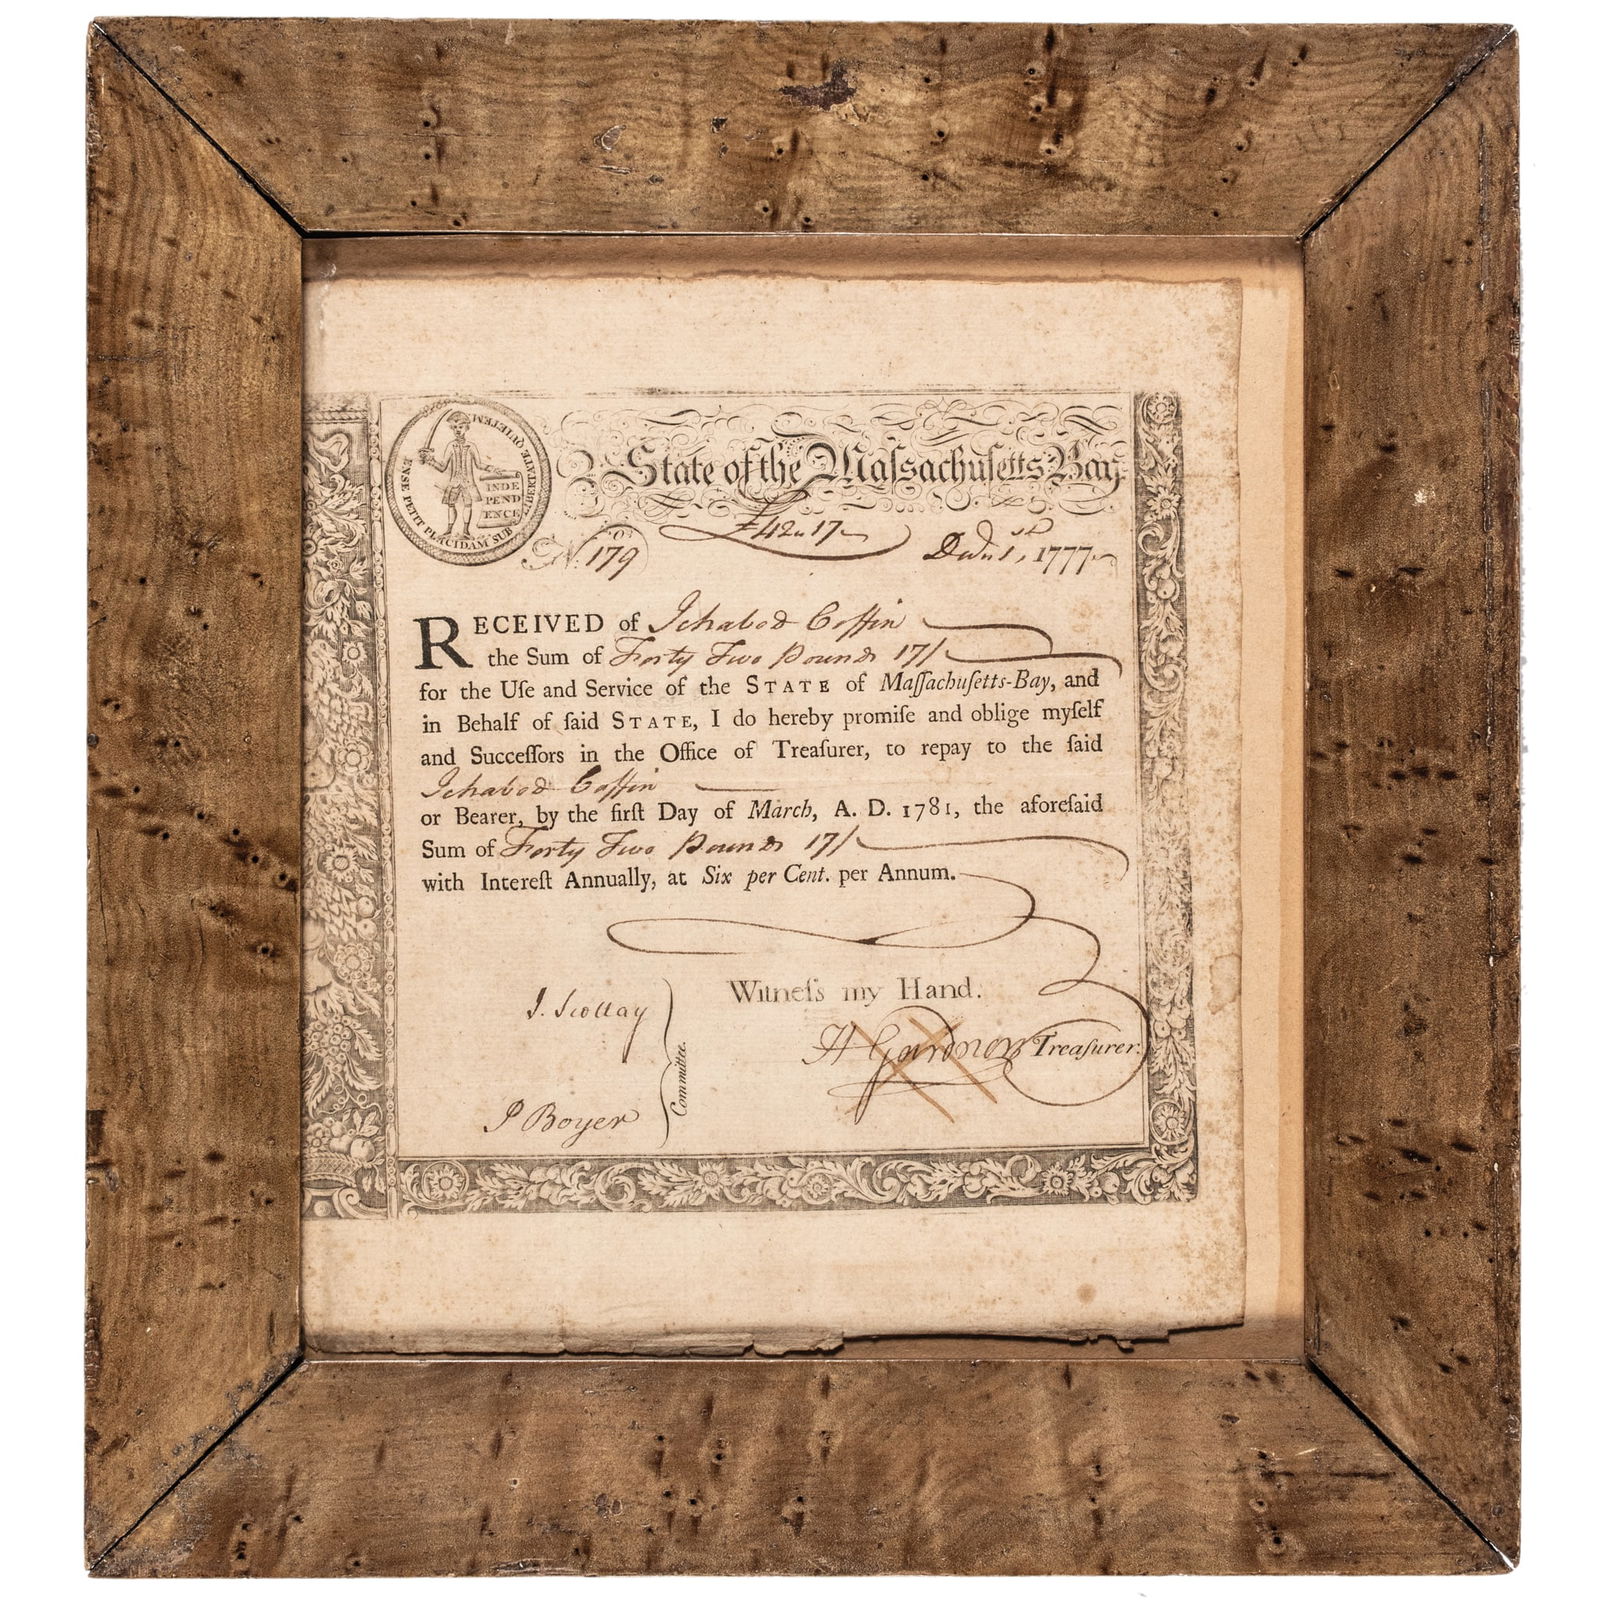 ENSE PETIT PLACIDAM SUB LIBERTATE QUIETEM
INDE
PEND
ENCE
State of the Maſsachuſetts-Bay.
£42.. 17
No. 179
1, 1777
RECEIVED of Ichabod Coffin
the Sum of Forty Two Pounds 17/
for the Uſe and Service of the STATE of Maſſachuſetts-Bay, and
in Behalf of ſaid STATE, I do hereby promiſe and oblige myſelf
and Succeſſors in the Office of Treaſurer, to repay to the ſaid
Ichabod Coffin
or Bearer, by the firſt Day of March, A. D. 1781, the aforeſaid
Sum of Forty Two Pounds 17/
with Intereſt Annually, at Six per Cent. per Annum.
Witneſs my Hand.
J. Scollay
H Gardner Treaſurer.
Committee.
P Boyer